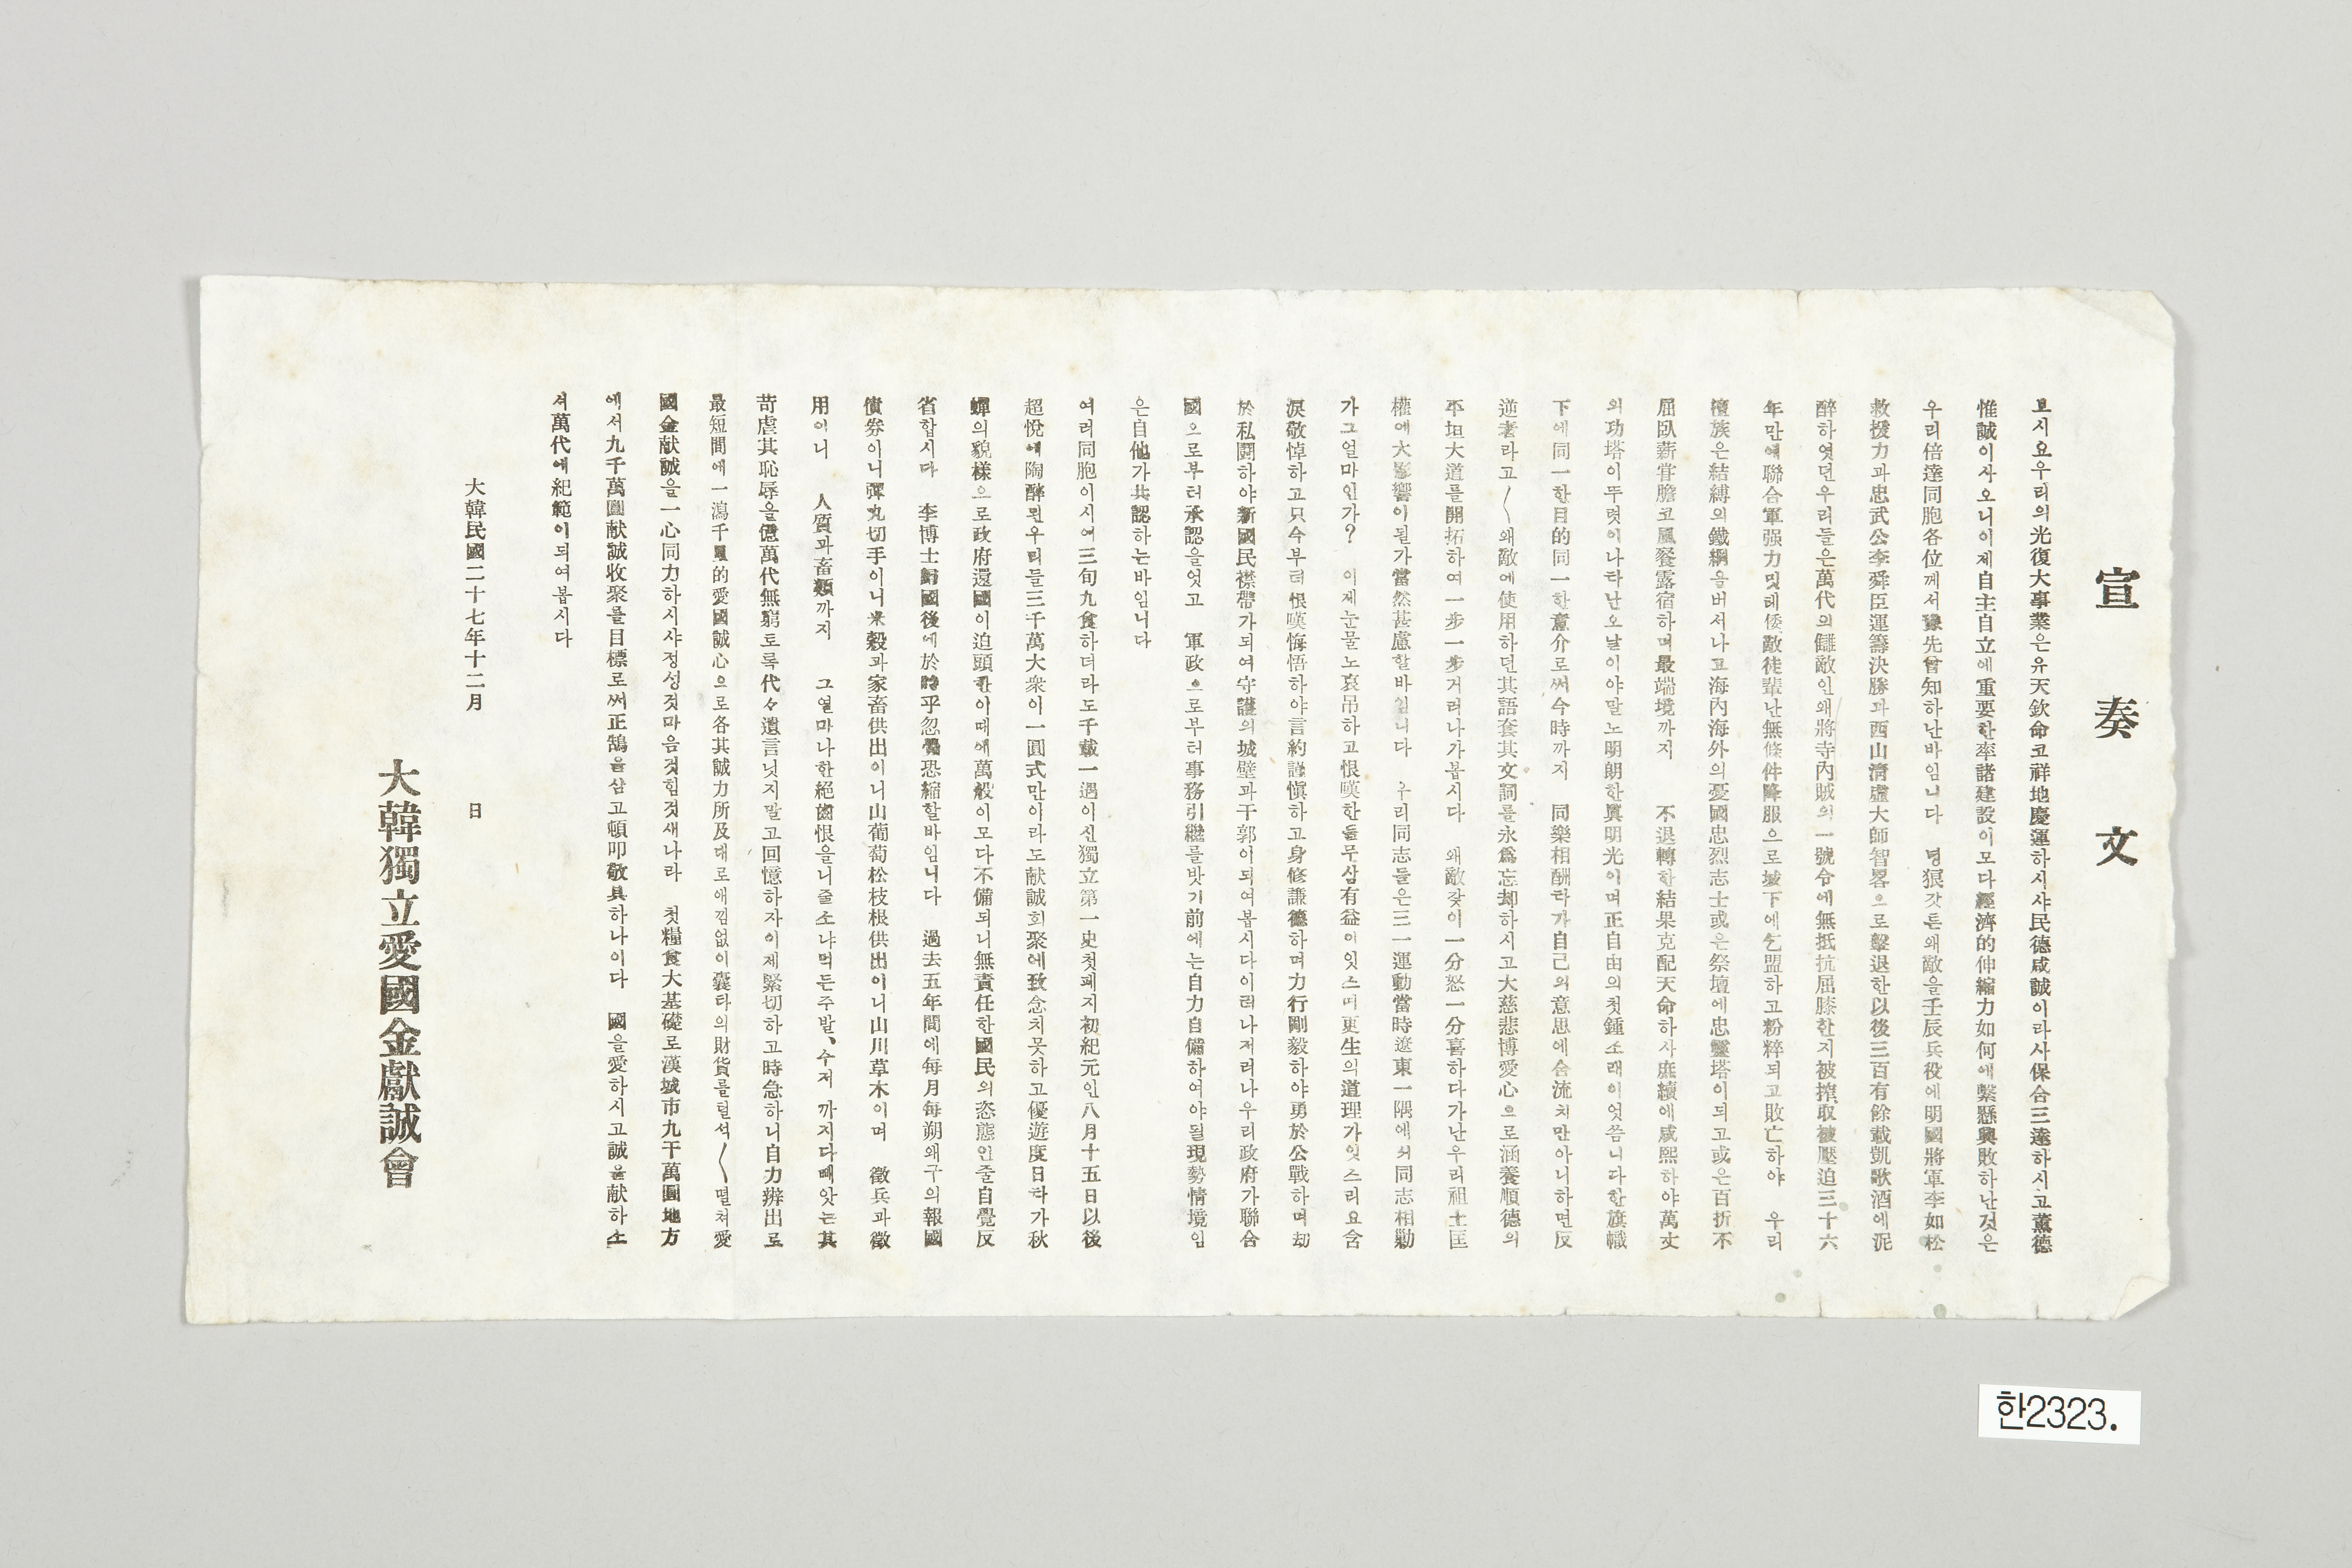 宣奏文
보시요우리의光復大事業은유天欽命코祥地慶運하시샤民德咸誠이라사保合三達하시고薰德
惟誠이사오니이제自主自立에重要한率諸建設이모다經濟的伸縮力如何에繫懸興敗하난것은
우리倍達同胞各位께서豫先曾知하난바임니다 명狠갓튼왜敵을壬辰兵役에明國將軍李如松
救援力과忠武公李舜臣運籌決勝과西山淸虛大師智畧으로擊退한以後三百有餘載凱歌酒에泥
醉하엿던우리들은萬代의讎敵인왜將寺內賊의一號令에無抵抗屈膝한지被搾取被壓迫三十六
年만에聯合軍强力밋테倭敵徒輩난無條件降服으로城下에乞盟하고粉粹되고敗亡하야 우리
檀族은結縛의鐵網을버서나고海內海外의憂國忠烈志士或은祭壇에忠靈塔이되고或은百折不
屈臥薪嘗膽코風餐露宿하며最端境까지 不退轉한結果克配天命하사庶績에咸熙하야萬丈
의功塔이뚜렷이나타난오날이야말노明朗한眞明光이며正自由의첫鍾소래이엇씀니다한旗幟
下에同一한目的同一한意介로써今時까지 同樂相酬타가自己의意思에合流치만아니하면反
逆者라고〱왜敵에使用하던其語套其文詞를永爲忘却하시고大慈悲博愛心으로涵養順德의
平坦大道를開拓하여一步一步거러나가봅시다 왜敵갖이一分怒一分喜하다가난우리祖土匡
權에大影響이될가當然甚慮할바임니다 우리同志들은三一運動當時遼東一隅에서同志相勦
가그얼마인가? 이제눈물노哀吊하고恨嘆한들무삼有益이잇스며更生의道理가잇스리요含
淚敬悼하고只今부터恨嘆悔悟하야言約謹愼하고身修謙德하며力行剛毅하야勇於公戰하며刼
於私鬪하야新國民襟帶가되여守護의城壁과干郭이되여봅시다이러나저러나우리政府가聯合
國으로부터承認을엇고 軍政으로부터事務引繼를밧기前에는自力自備하여야될現勢情境임
은自他가共認하는바임니다
여러同胞이시여三旬九食하더라도千載一遇이신獨立第一史첫페지初紀元인八月十五日以後
超悅에陶醉된우리들三千萬大衆이一圓式만이라도献誠회聚에致念치못하고優遊度日타가秋
蟬의貌樣으로政府還國이迫頭한이때에萬般이모다不備되니無責任한國民의恣態인줄自覺反
省합시다 李博士歸國後에於時乎忽驚恐縮할바임니다 過去五年間에每月每朔왜구의報國
債券이니彈丸切手이니米穀과家畜供出이니山葡萄松枝根供出이니山川草木이며 徵兵과徵
用이니 人質과畜類까지 그얼마나한絕齒恨을니줄소냐먹든주발、수저 까지다빼앗는其
苛虐其恥辱을億萬代無窮토록代々遺言닛지말고回憶하자이제緊切하고時急하니自力辦出로
最短間에一瀉千里的愛國誠心으로各其誠力所及대로애낌없이囊타의財貨를털석〱떨처愛
國金献誠을一心同力하시샤정성것마음것힘것새나라 첫糧食大基礎로漢城市九千萬圓地方
에서九千萬圓献誠收聚를目標로써正鵠을삼고頓叩敬具하나이다 國을愛하시고誠을献하소
셔萬代에紀範이되여봅시다
大韓民國二十七年十二月 日
大韓獨立愛國金獻誠會
한2323.